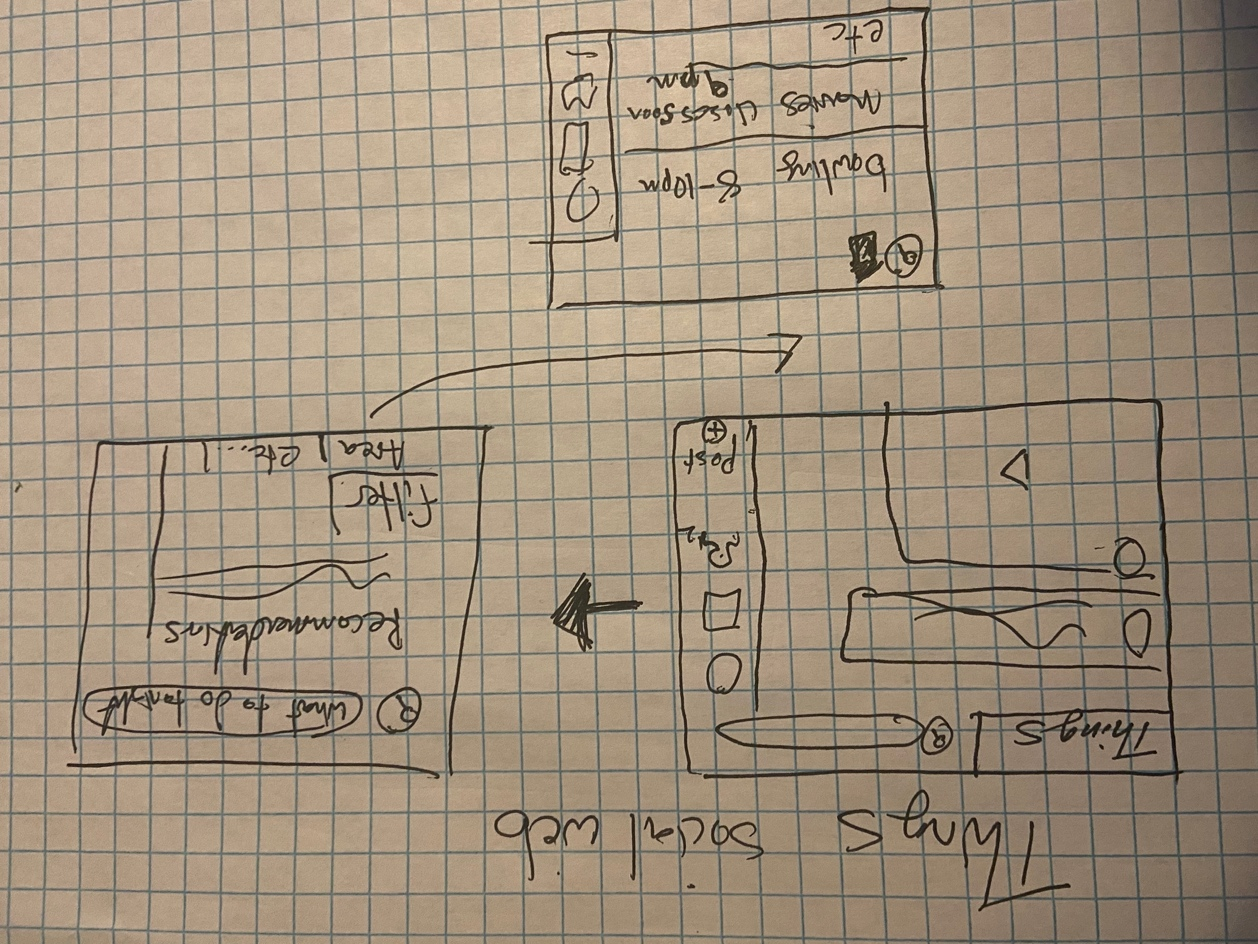 Things social web
Things
Post
What to do tonight
Recommendations
filter
Area | etc... |
bowling 8-10pm
Movies closes soon
9pm
etc